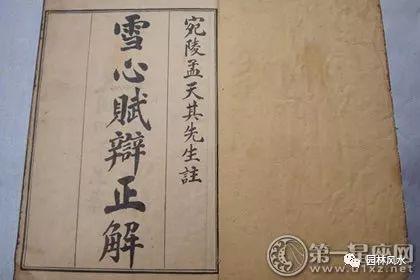 宛陵孟天其先生註
雪心賦辯正解
第一星座网
www.d1xz.net
园林风水